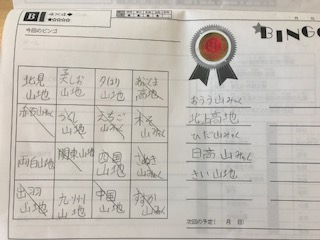 B
4×4
★☆☆☆☆
今回のビンゴ
BINGO
北見
山地
天しお
山地
夕ばり
山地
高地
山みゃく
山地
えちご
山みゃく
木そ
山みゃく
両白山地
関東山地
四国
山地
さぬき
山みゃく
出羽
山地
九州
山地
中国
山地
すずか
山みゃく
おうう山みゃく
北上高地
ひだ山みゃく
日高山みゃく
きい山地
次回の予定(　月　日)